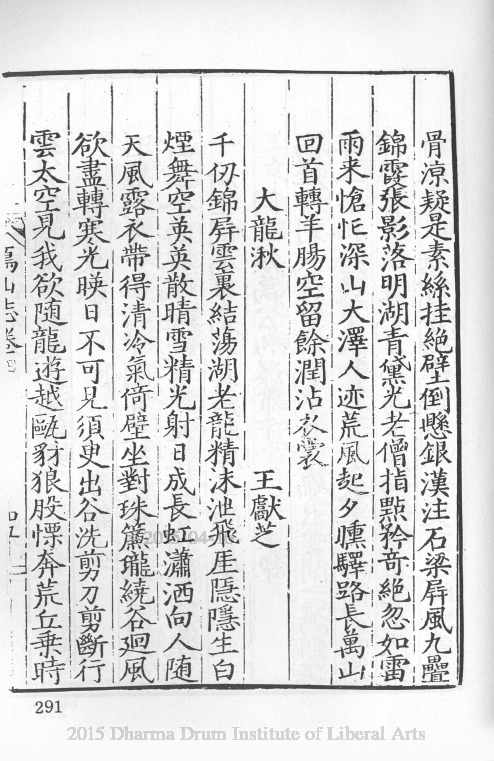 骨涼疑是素絲挂絶壁倒懸銀漢注石梁屏風九疊
錦霞張影落明湖青黛光老僧指點矜奇絶忽如雷
雨来愴怳深山大澤人迹荒風起夕曛驛路長萬山
回首轉羊腸空留餘潤沾衣裳
大龍湫 王獻芝
千仞錦屏雲裏結蕩湖老龍精沫池飛厓隱隱生白
煙舞空英英散晴雪精光射日成長虹瀟洒向人随
天風露衣帶得清冷氣倚壁坐對珠簾瓏繞谷廻風
欲盡轉寒光暎日不可見須臾出谷洗剪刀剪斷行
雲太空見我欲随龍遊越甌豺狼股慄奔荒丘乗時
山志卷四
291
2015 Dharma Drum Institute of Liberal Arts